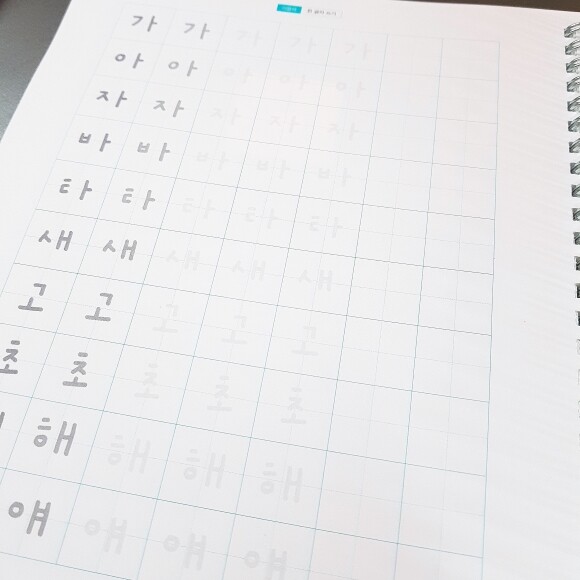 가 가 가 가 가
아 아 아 아 아
자 자 자 자 자
바 바 바 바 바
타 타 타 타 타
새 새 새 새 새
고 고 고 고 고
초 초 초 초 초
해 해 해 해
얘 얘 얘 얘